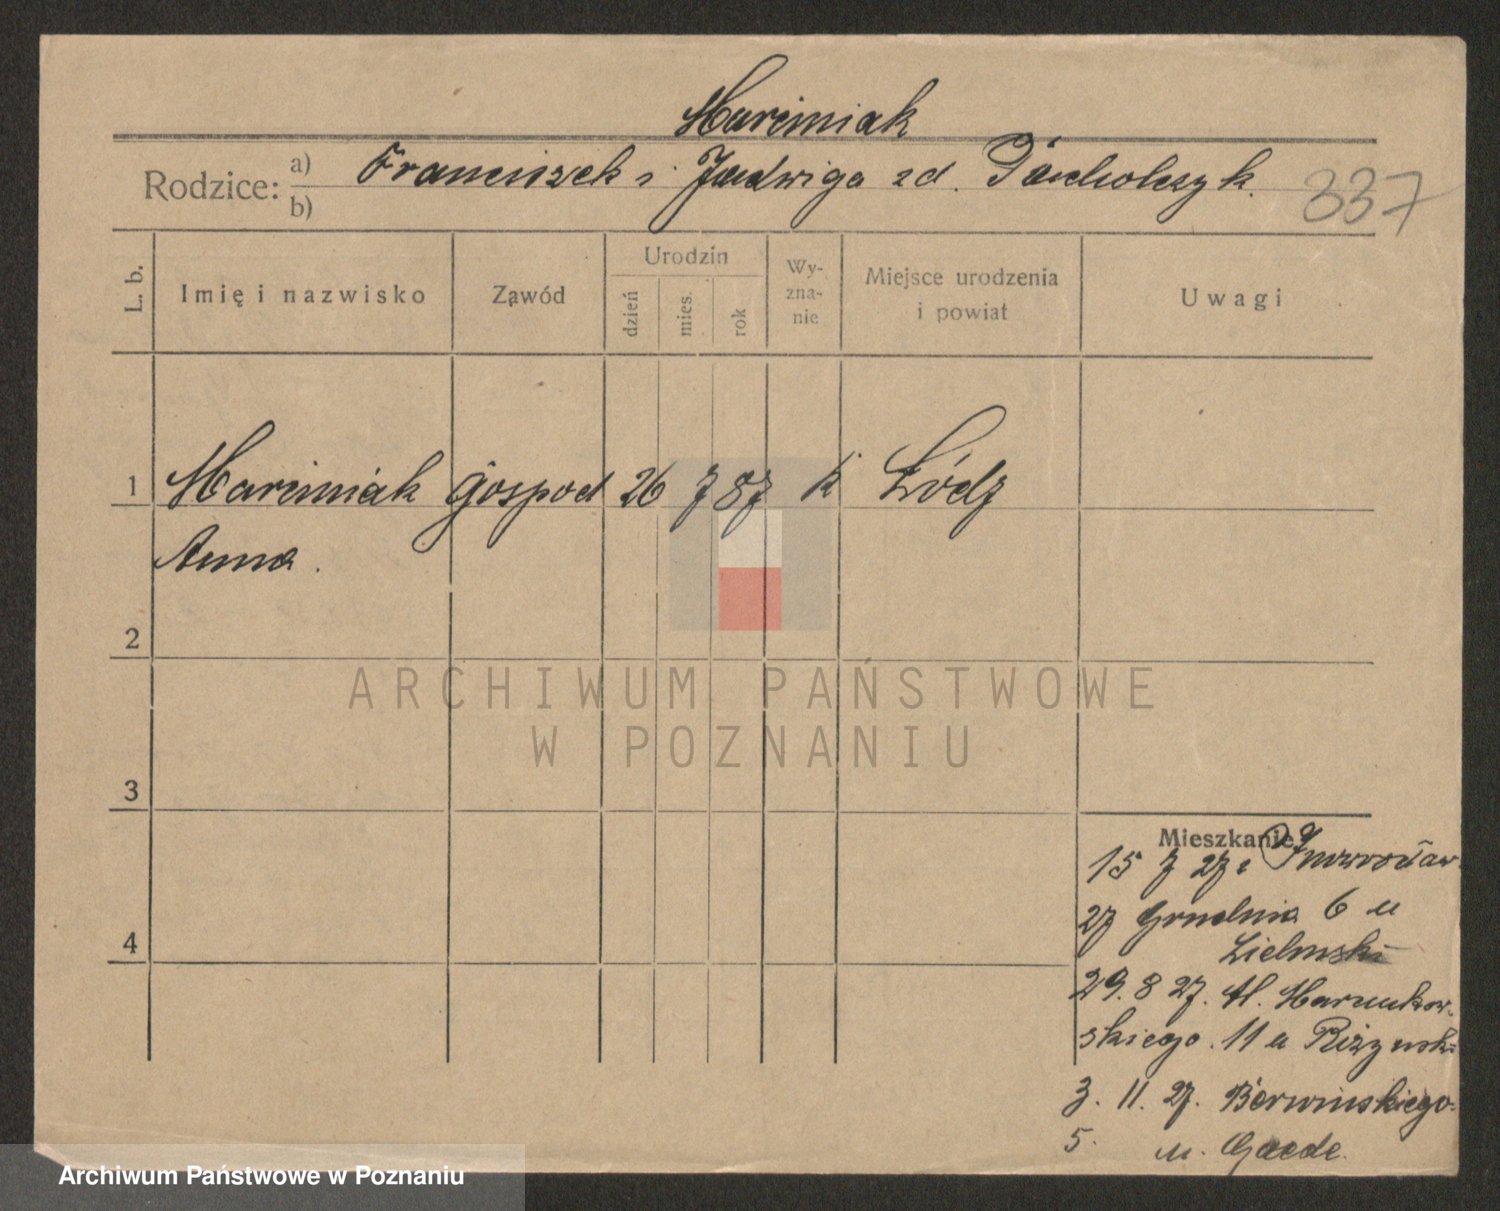 Marciniak
Rodzice: a) Franciszek i Jadwiga zd.
b)
337
L. b.
Imię i nazwisko
Zawód
Urodzin
dzień
mies.
rok
Wy-
zna-
nie
Miejsce urodzenia
i powiat
Uwagi
1 Marciniak gospod 26 7 87 k Łódź
Anna.
2
3
4
Mieszkanie
15 7 27
27 Grudnia 6 u
29. 8 27. Al. Marcinkow-
skiego. 11 u
3. 11. 27. Berwińskiego
5. u. Gaede.
ARCHIWUM PAŃSTWOWE
W POZNANIU
Archiwum Państwowe w Poznaniu